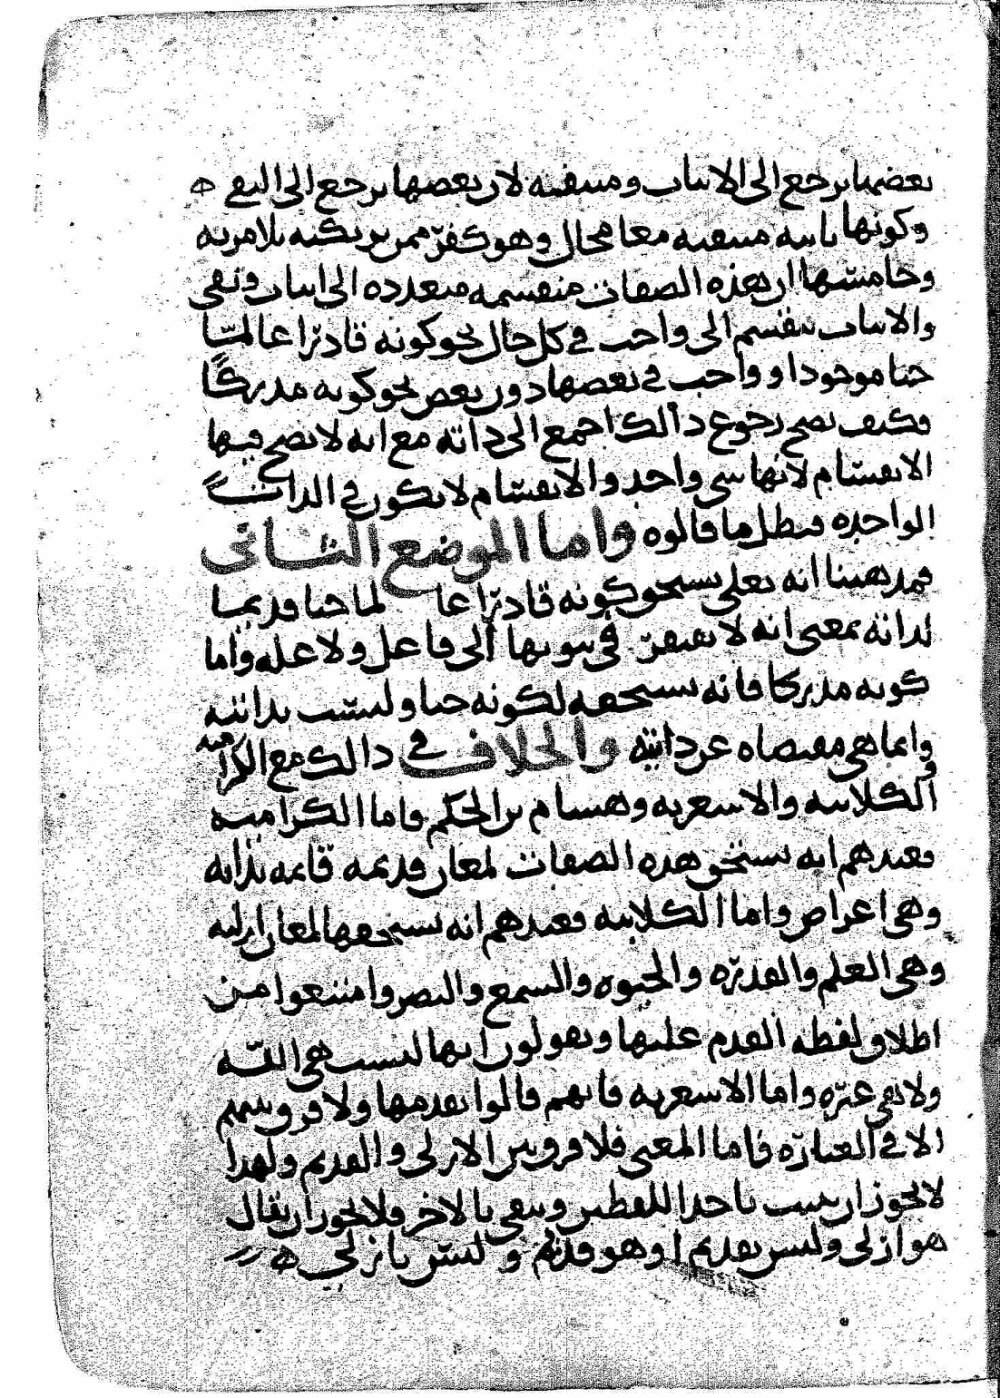 بعضها يرجع الى الاثبات ومنتفية لان بعضها يرجع الى النفي ه
وكونها ثابتة منتفية معا محال وهو كفر ممن يرتكبه بلا مرية
وخامستها ان هذه الصفات منقسمة متعددة الى اثبات ونفي
والاثبات ينقسم الى واجب في كل حال نحو كونه قادرًا عالمًا
حيا موجودا وواجب في بعضها دون بعض نحو كونه مدركًا
فكيف يصح رجوع ذالك اجمع الى ذاته مع انه لا يصح فيها
الانقسام لانها شي واحد والانقسام لا يكون في الذات
الواحدة فبطل ما قالوه واما الموضع الثاني
فمذهبنا انه تعلى يستحق كونه قادرًا عالما حيا قديما
لذاته بمعنى انه لا يفتقر في ثبوتها الى فاعل ولا علة واما
كونه مدركا فانه يستحقه لكونه حيا وليست بذاتية
وانما هي مقتضاه عن ذاتيه والخلاف في ذالك مع الكرامية
والكلابية والاشعرية وهشام بن الحكم فاما الكرامية
فعندهم انه يستحق هذه الصفات لمعان قديمة قائمة بذاته
وهي اعراض واما الكلابية فعندهم انه يستحقها لمعان ازلية
وهي العلم والقدرة والحيوة والسمع والبصر وامتنعوا من
اطلاق لفظة القدم عليها ويقولون انها ليست هي الله
ولا هي غيره واما الاشعرية فانهم قالوا بقدمها ولا فرق بينهم
الا في العبارة فاما المعنى فلا فرق بين الازلي والقديم ولهذا
لا يجوز ان يثبت باحد اللفظين وينفي بالاخر فلا يجوز ان يقال
هو ازلي وليس بقديم او هو قديم وليس بازلي ه